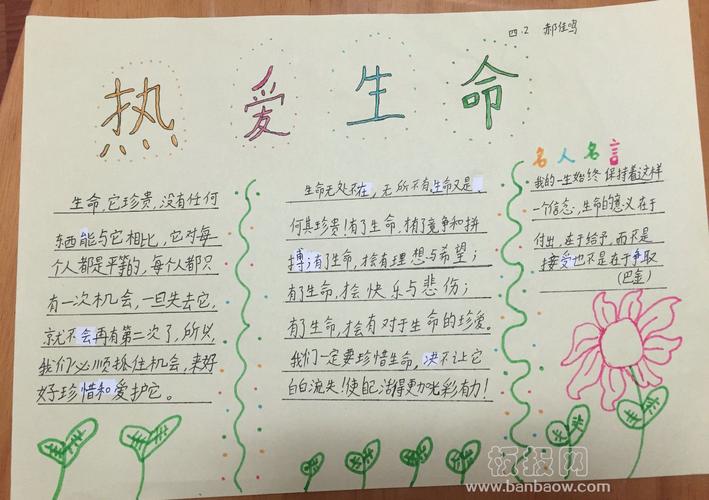 四.2 郝佳鸣
热爱生命
生命,它珍贵,没有任何
东西能与它相比,它对每
个人都是平等的,每个人都只
有一次机会,一旦失去它,
就不会再有第二次了,所以
我们必顺抓住机会,来好
好珍惜和爱护它。
生命无处不在,无所不有,生命又是
何其珍贵!有了生命,才有了竞争和拼
搏;有了生命,才会有理想与希望;
有了生命,才会快乐与悲伤;
有了生命,才会有对于生命的珍爱。
我们一定要珍惜生命,决不让它
白白流失!使自己活得更加光彩有力!
名人名言
我的一生始终保持着这样
一个信念,生命的意义在于
付出,在于给予,而不是
接受也不是在于争取
(巴金)
板报网
www.banbaow.com